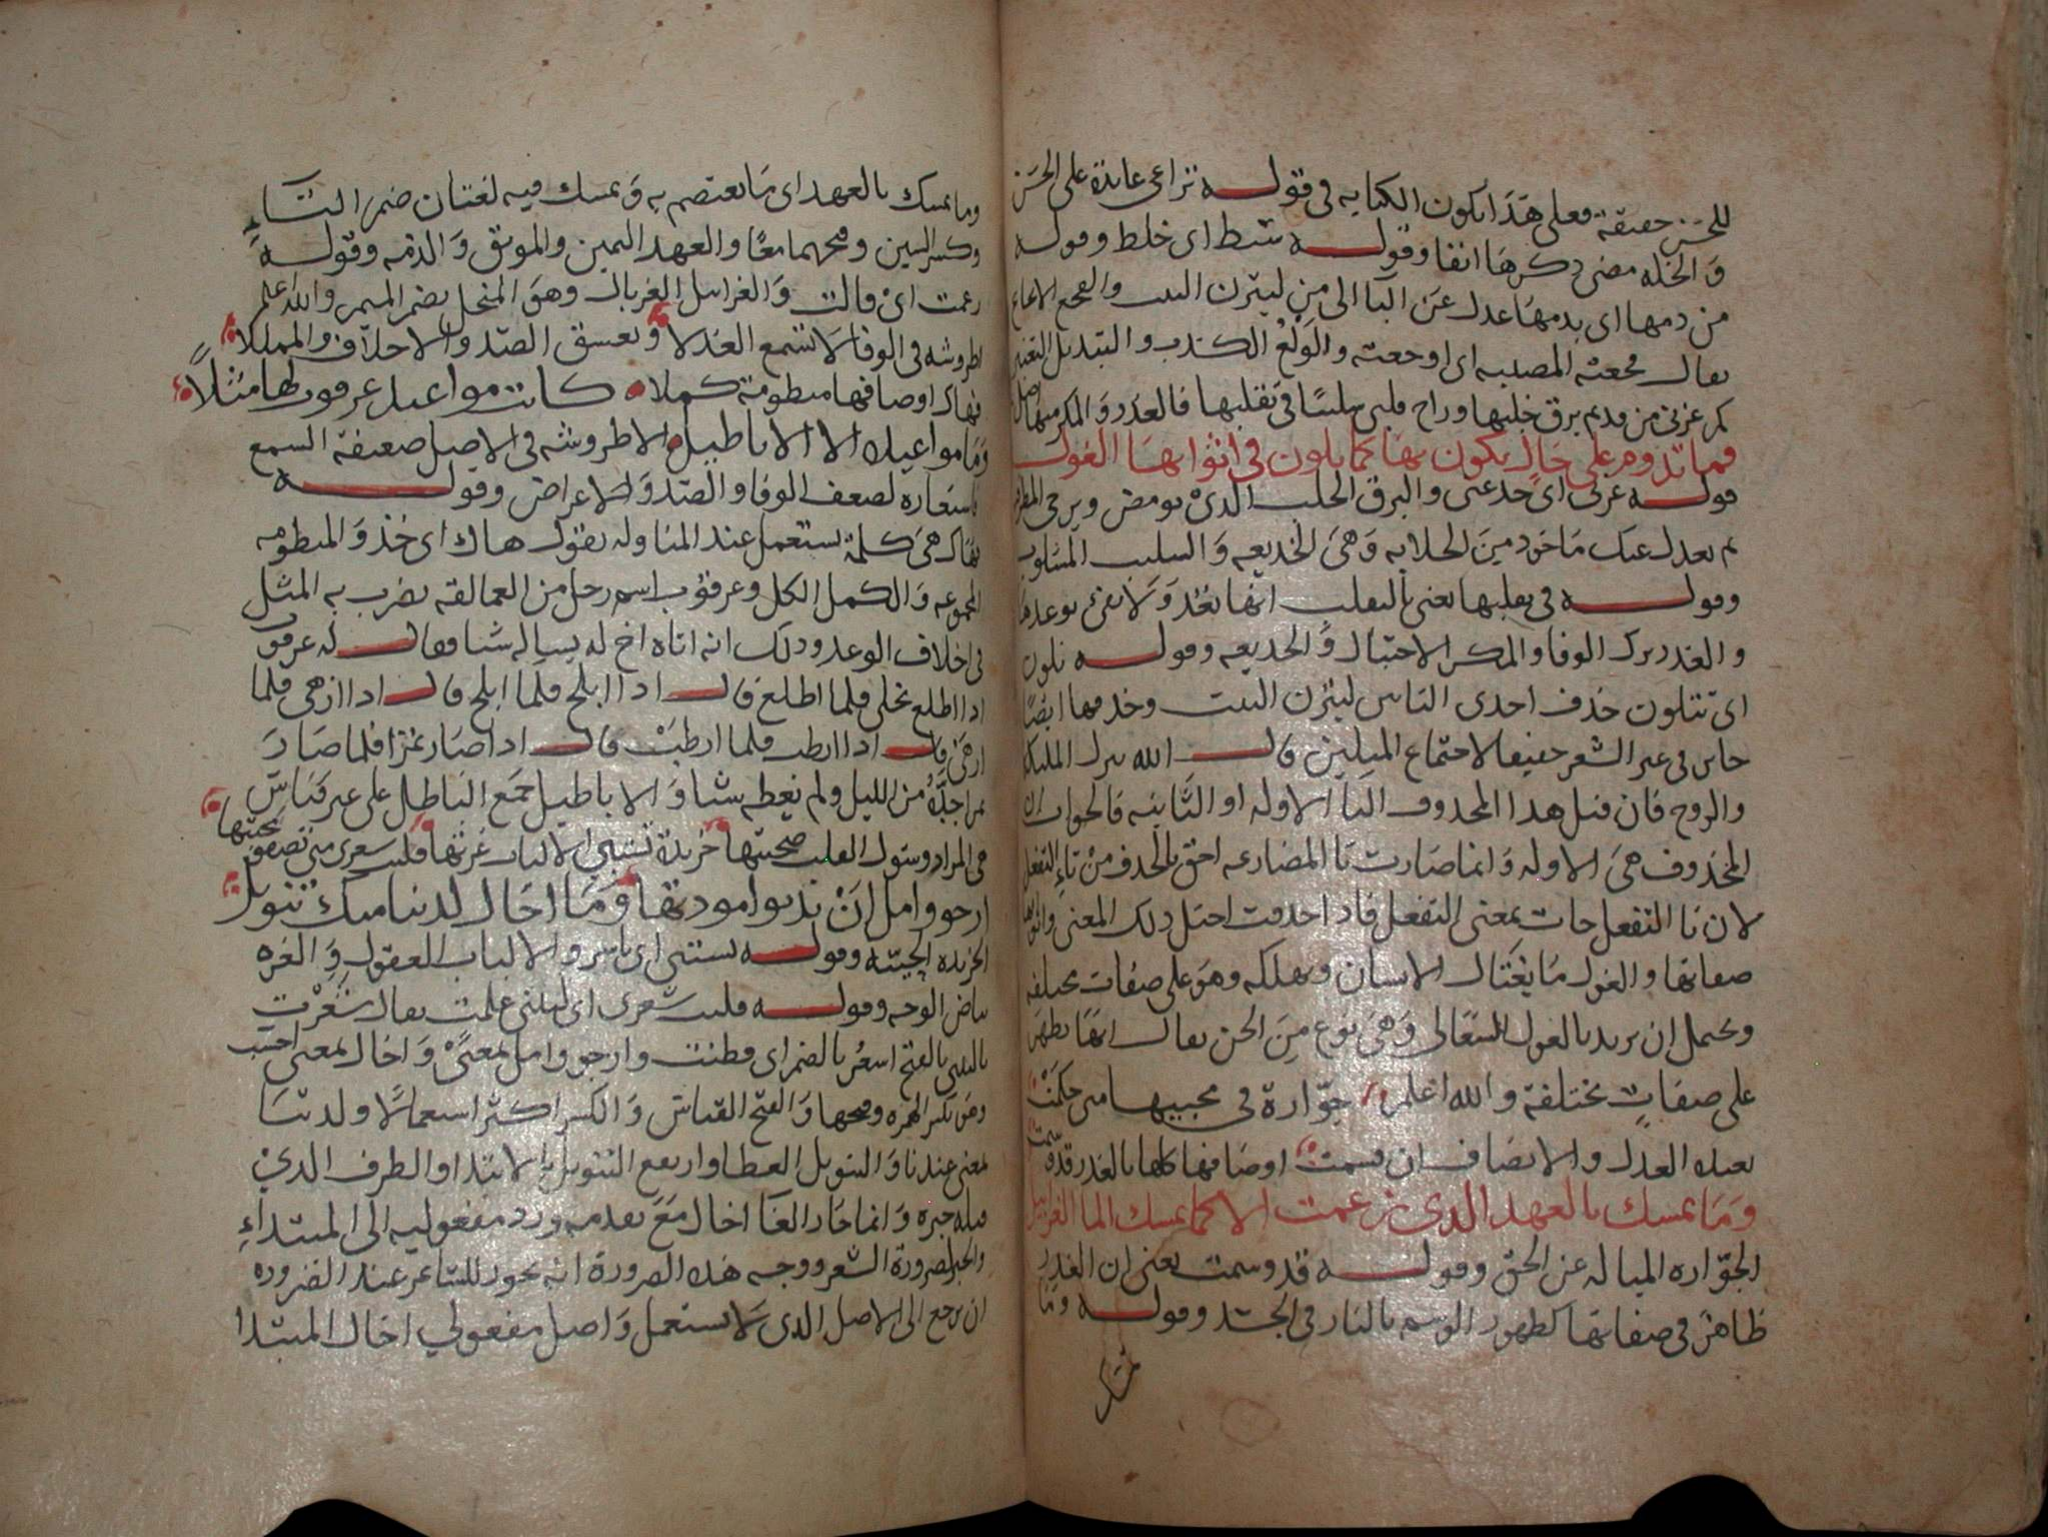 للحسن حقيقة فعلى هذا يكون الكنايه فى قوله تراعى عايدة على الحسن
والخله مضى ذكرها انفا وقوله شيط اى خلط وقوله
من دمها اى بدمها عدل عن البا الى من ليتزن البيت والفجع الاىجاع
يقال فجعته المصيبه اى اوجعته والولع الكذب والتبديل التغير
كم غرنى من وديم برق خلبها وراح قلبى سليبًا فى تقلبها فالغدر والمكر
فما تدوم على حال يكون بها كما تلون فى اثوابها الغول
قوله غرنى اى خدعنى والبرق الخلب الذى يومض ويرجى المطر
ثم يعدل عنك ماخوذ من الخلابه وهى الخديعه والسليب المسلوب
وقوله فى تقلبها يعنى بالتقلب انها تعد ولا تفى بوعدها
والغدر ترك الوفا والمكر الاحتيال والخديعه وقوله تلون
اى تتلون حذف احدى التاىن ليتزن البيت وحذفها ايضا
جايز فى غير الشعر خفيفا لاجتماع المثلين قال الله تنزل المليكة
والروح فان قيل هذا المحذوف التا الاوله او الثانيه فالجواب ان
المحذوف هى الاوله وانما صارت تا المضارعه احق بالحذف من تاء التفعل
لان تا التفعل جات بمعنى التفعل فاذا حذفت اختل ذلك المعنى واثوابها
صفاتها والغول ما يغتال الانسان ويهلكه وهو على صفات مختلفه
ويحتمل ان يريد بالغول السعالى وهى نوع من الجن يقال انها تظهر
على صفات مختلفة والله اعلم جوّارة فى محبيها متى حكمت
بعيده العدل والانصاف ان قسمت اوصافها كلها بالغدر قد وسمت
وما تمسك بالعهد الذى زعمت الا كما تمسك الما الغرابيل
الجوّاره المياله عن الحق وقوله قد وسمت يعنى ان الغدر
ظاهر فى صفاتها كظهور الوسم بالنار فى الجسد وقوله وما
وما تمسك بالعهد اى ما تعتصم به وتمسك فيه لغتان ضم التاء
وكسر السين وفتحهما معًا والعهد اليمين والموثق والذمه وقوله
زعمت اى قالت والغرابيل الغربال وهو المنخل بضم الميم والله اعلم
اطروشه فى الوفا لا تسمع العذلا وتعشق الصد والاخلاف والمللا
فهاك اوصافها منظومة كملا كانت مواعيد عرقوب لها مثلًا
وما مواعيدها الا الاباطيل الاطروشه فى الاصل ضعيفة السمع
فاستعاره لضعف الوفا والصد والاعراض وقوله
فهاك هى كلمة تستعمل عند المناوله يقول هاك اى خذ والمنظومه
المجموعه والكمل الكل وعرقوب اسم رجل من العمالقه يضرب به المثل
فى اخلاف الوعد وذلك انه اتاه اخ له يساله شيا فقال له عرقوب
اذا اطلع نخلى فلما اطلع قال اذا ابلح فلما ابلح قال اذا ازهى فلما
ازهى قال اذا ارطب فلما ارطب قال اذا صار تمرًا فلما صار
تمرا جدّه من الليل ولم يعطه شيا والاباطيل جمع الباطل على غير قياس
هى المراد وسول القلب صحبتها خريدة تستبى الالباب غرتها فليت شعرى متى تصفو محبتها
ارجو وامل ان تدنوا مودتها وما اخال لدينا منك تنويل
الخريده الحييّه وقوله تستبى اى تاسر والالباب العقول والغره
بياض الوجه وقوله فليت شعرى اى ليتنى علمت يقال شعرت
بالشى بالفتح اشعر بالضم اى فطنت وارجو وامل بمعنى واخال بمعنى احسب
وهى بكسر الهمزه وفتحها والفتح القياس والكسر اكثر استعمالًا ولدينا
بمعنى عندنا والتنويل العطا وارتفع التنويل بالابتدا والظرف الذى
قبله خبره وانما جاز الغا اخال مع تقدمه ورد مفعوليه الى المبتداء
والخبر لضرورة الشعر ووجه هذه الضرورة انه يجوز للشاعر عند الضروره
ان يرجع الى الاصل الذى لا يستعمل واصل مفعولي اخال المبتدا